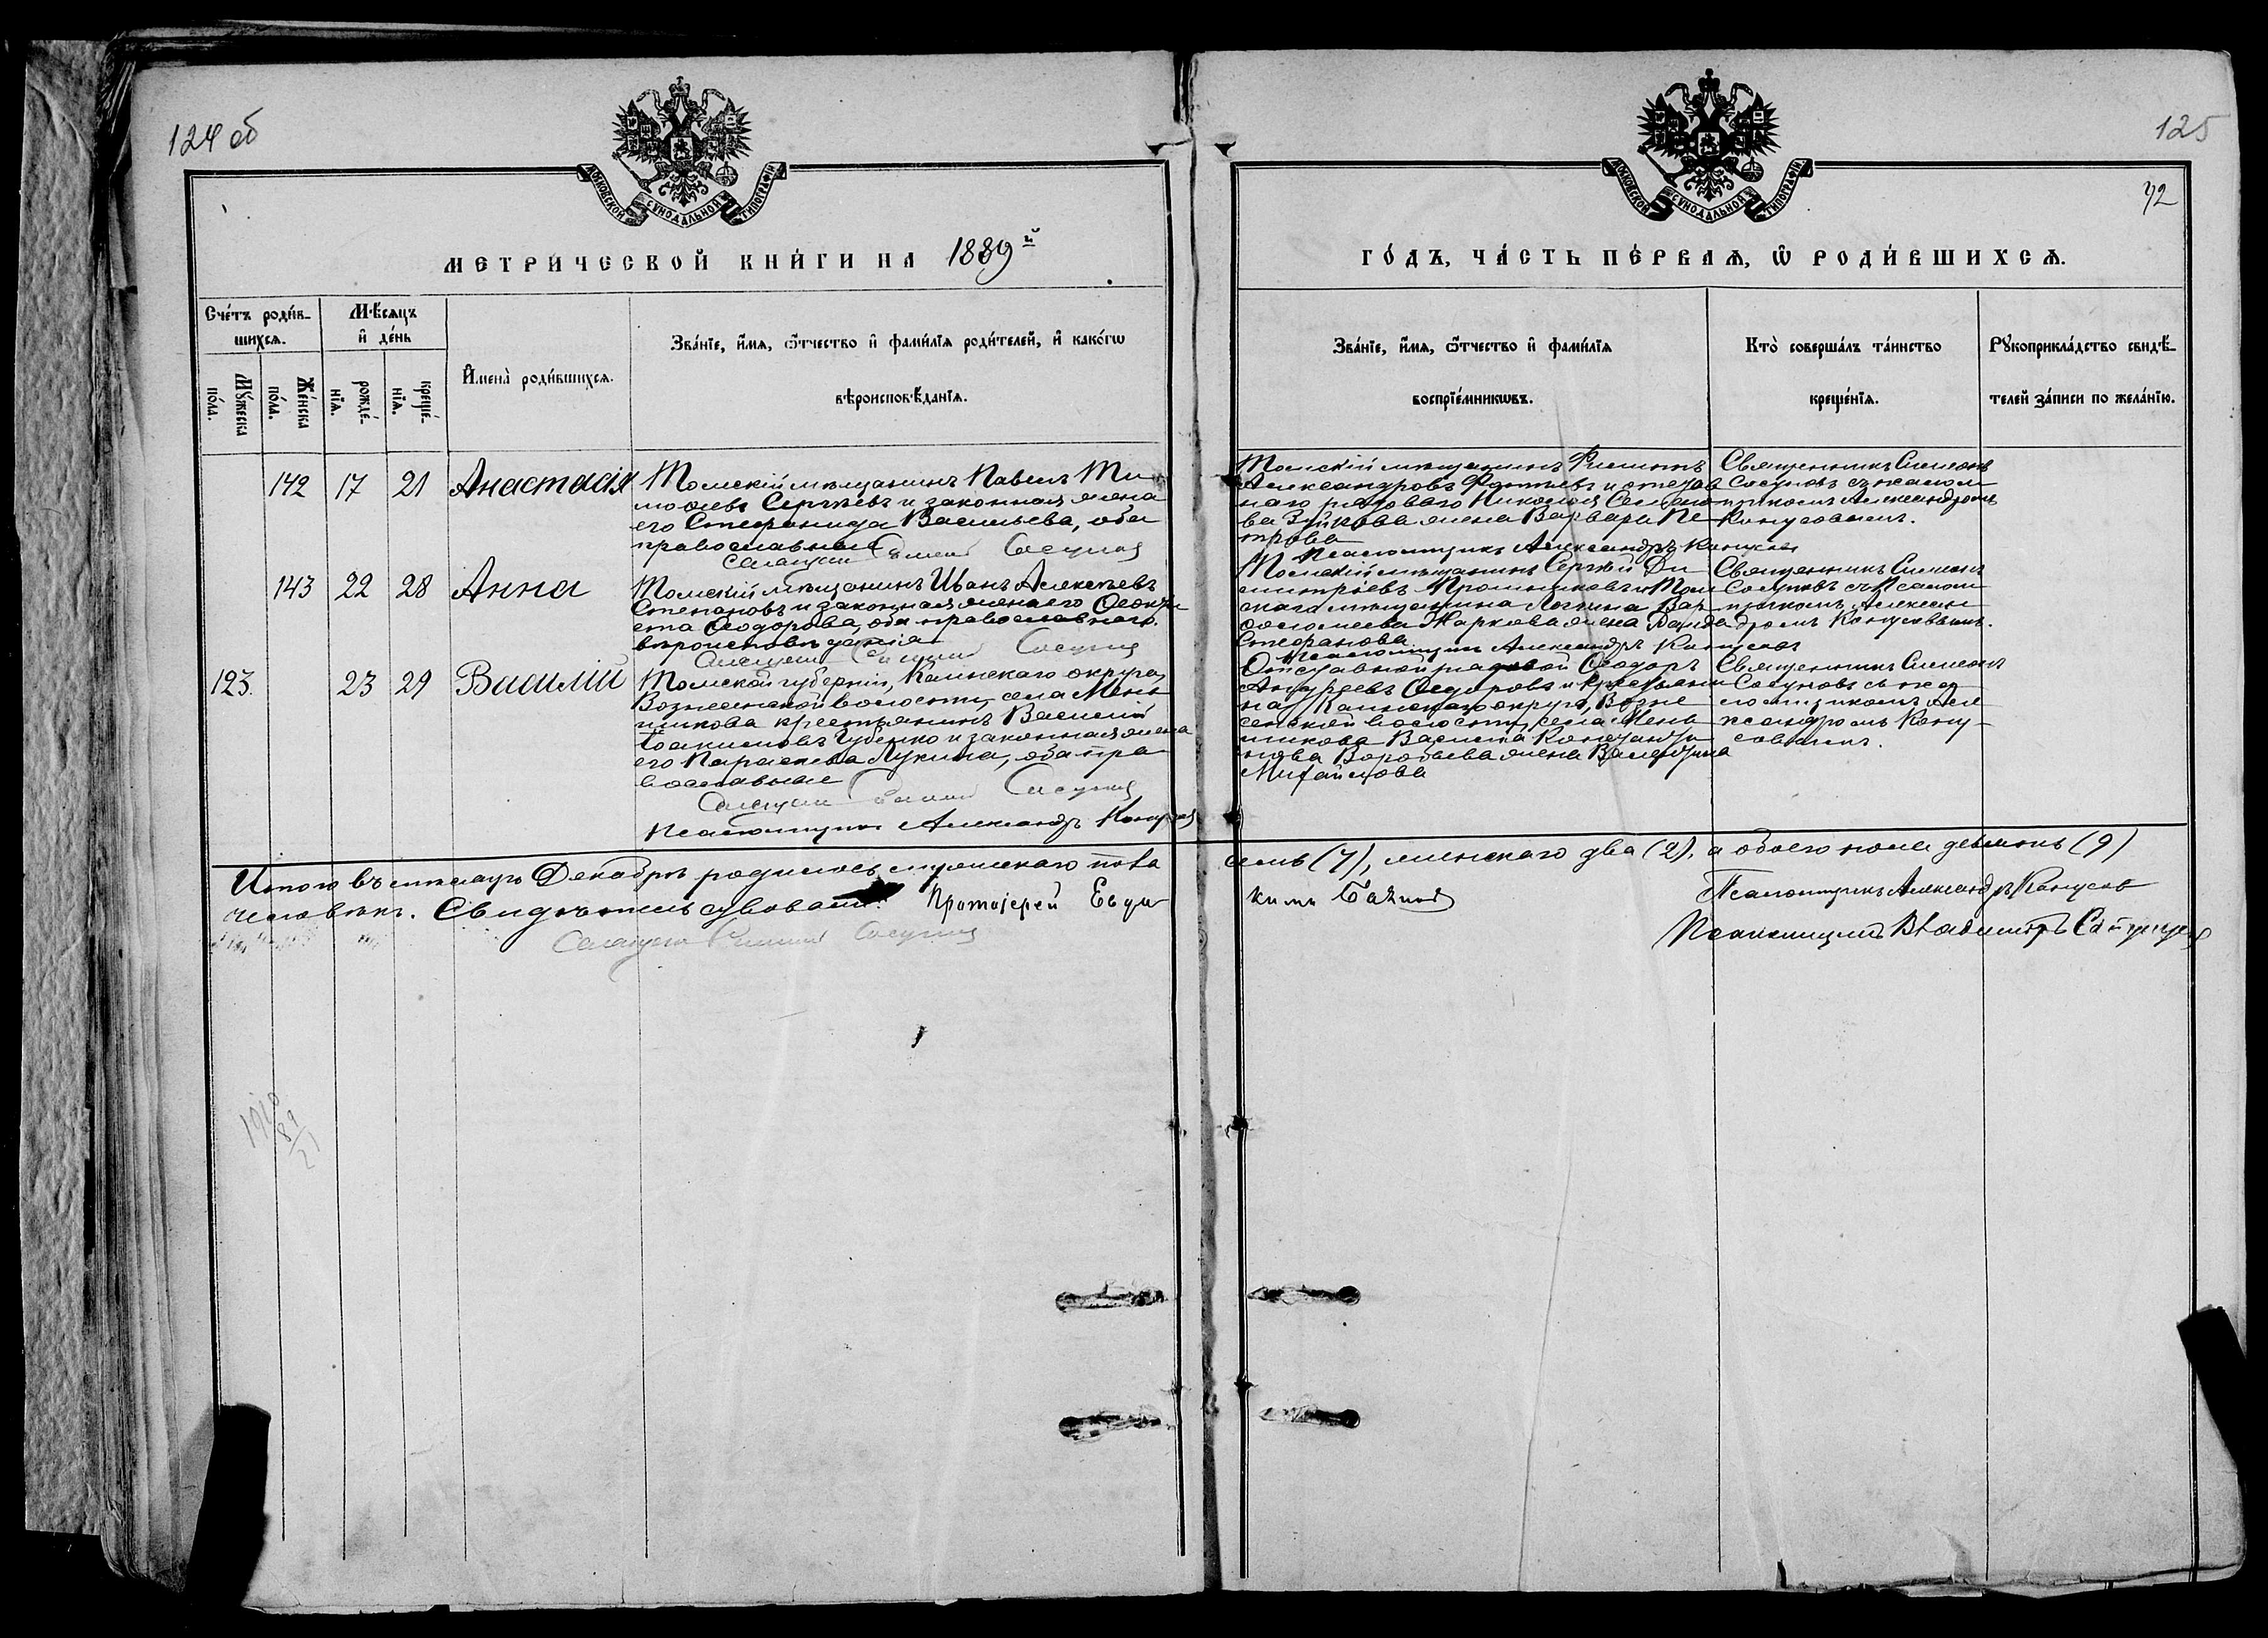 124 об
125
72
МОСКОВСКОЙ СУНОДАЛЬНОЙ ТИПОГРАФІИ
МОСКОВСКОЙ СУНОДАЛЬНОЙ ТИПОГРАФІИ
МЕТРИ́ЧЕСКОЙ КНИ́ГИ НА 1889й
ГО́ДЪ, ЧА́СТЬ ПЕ́РВАѦ, Ѿ РОДИ́ВШИХСѦ.
Сче́тъ роди́в-
шихсѧ.
Мꙋ́жеска
по́ла.
Же́нска
по́ла.
Мѣ́сѧцъ
и҆ де́нь
рожде́-
нїѧ.
креще́-
нїѧ.
И҆мена̀ роди́вшихсѧ.
Зва́нїе, и҆́мѧ, ѻ҆́тчество и҆ фами́лїѧ роди́телей, и҆ како́гѡ
вѣроисповѣ́данїѧ.
Зва́нїе, и҆́мѧ, ѻ҆́тчество и҆ фами́лїѧ
воспрїе́мникѡвъ.
Кто̀ соверша́лъ та́инство
креще́нїѧ.
Рꙋкоприкла́дство свидѣ́-
телей за́писи по жела́нїю.
142 17 21 Анастасія
Томскій мѣщанинъ Павелъ Ти
моѳеевъ Сергѣевъ и законная жена
его Стефанида Васильева, оба
православные
Томскій мѣщанинъ Филиппъ
Александровъ Фотіевъ и отстав
наго рядоваго Николая Семено
ва Зуйкова жена Варвара Пе
трова
Псаломщикъ Александръ Конусовъ
Священникъ Симеонъ
Сосуновъ съ псалом
щикомъ Александромъ
Конусовымъ.
143 22 28 Анна
Томскій мѣщанинъ Иванъ Алексѣевъ
Степановъ и законная жена его Ѳеокти
ста Ѳеодорова, оба православнаго
вѣроисповѣданія
Томскій мѣщанинъ Сергѣй Ди
митріевъ Промышковъ и Том
скаго мѣщанина Логгина Вар
ѳоломеева Жаркова жена
Стефанова
Псаломщикъ Александръ Конусовъ
Священникъ Симеонъ
Сосуновъ съ Псалом
щикомъ Алексан
дромъ Конусовымъ.
123. 23 29 Василій
Томской губерніи, Каинскаго округа,
Вознесенской волости, села Мень
шикова крестьянинъ Василій
Іоакимовъ Губенко и законная жена
его Параскева Лукина, оба пра
вославные
Псаломщикъ Александръ Конусовъ
Отставной рядовой Ѳеодоръ
Андреевъ Ѳедоровъ и крестьяни
на Каинскаго округа, Возне
сенской волости, села Мень
шикова Василія Константи
нова Воробьева жена
Михайлова
Священникъ Симеонъ
Сосуновъ съ пса
ломщикомъ Але
ксандромъ Кону-
совымъ.
Итого въ мѣсяцѣ Декабрѣ родилось мужескаго пола
семь (7), женскаго два (2), а обоего пола девять (9)
человѣкъ. Свидѣтельствовали: Протоіерей Евди
кимъ
Псаломщикъ Александръ Конусовъ
Псаломщикъ Владиміръ